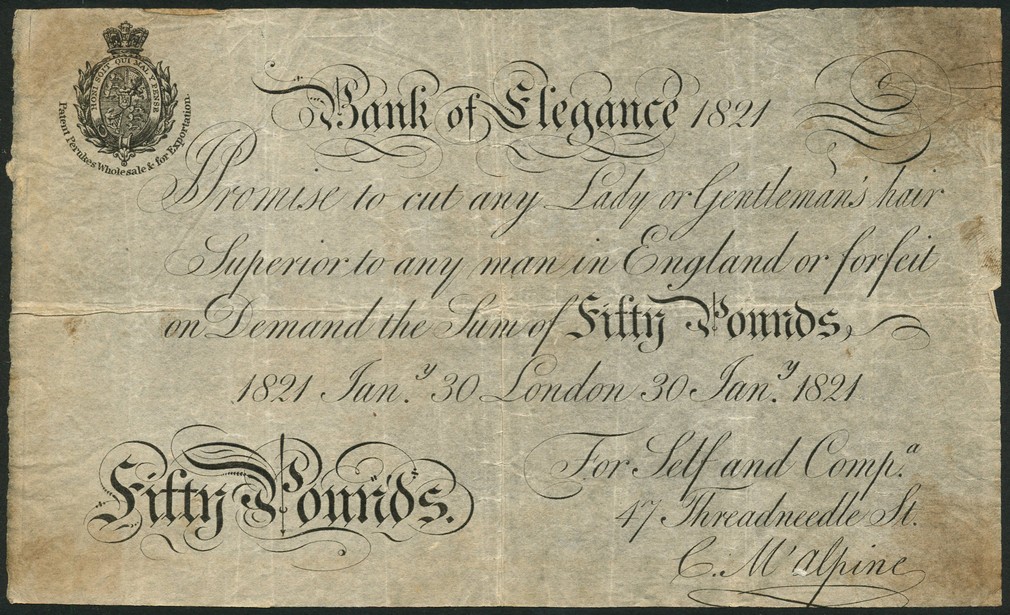 HONI SOIT QUI MAL Y PENSE
Patent Perukes Wholesale & for Exportation.
Bank of Elegance 1821
I Promise to cut any Lady or Gentleman's hair
Superior to any man in England or forfeit
on Demand the Sum of Fifty Pounds,
1821 Jan.y 30 London 30 Jan.y 1821
Fifty Pounds.
For Self and Comp.a
47 Threadneedle St.
C. M'alpine